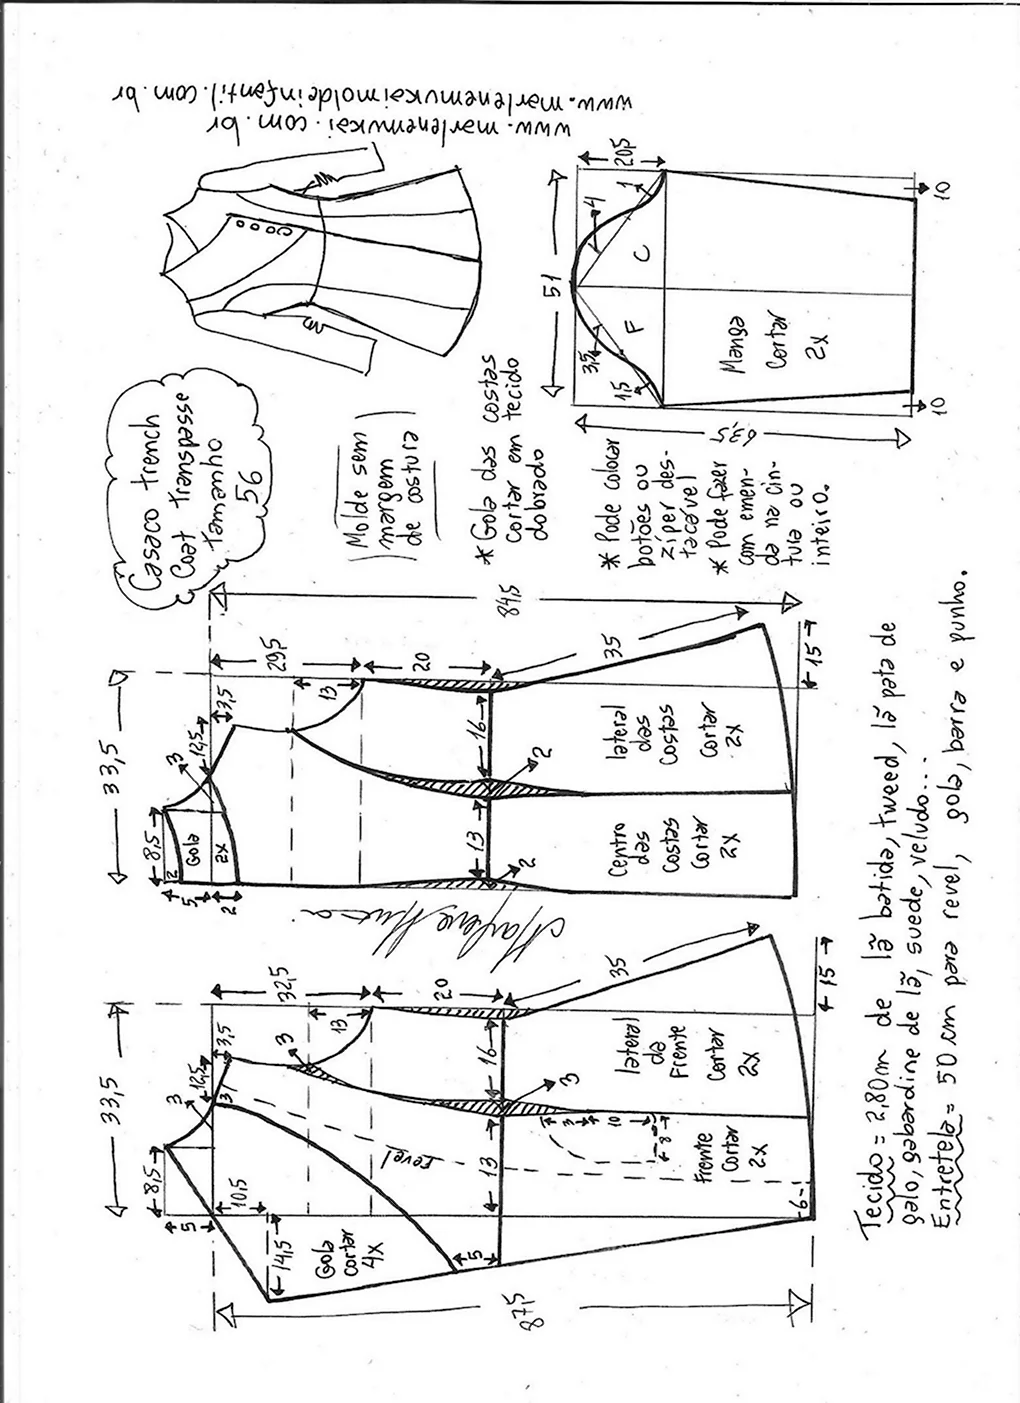 www.marlenemukaimoldeinfantil.com.br
www.marlenemukai.com.br
Casaco trench
Coat transpasse
Tamanho
56
Molde sem
margem
de costura
* Gola das costas
cortar em tecido
dobrado
* Pode colocar
botões ou
zíper des-
tacável
* Pode fazer
com emen-
da na cin-
tura ou
inteiro.
51
20,5
63,5
4
1
3,5
1,5
C
F
Manga
Cortar
2x
10
10
33,5
8,5
3
12,5
3,5
29,5
13
20
84,5
35
15
16
13
2
2
5
2
12
Gola
2x
lateral
das
Costas
Cortar
2x
Centro
das
Costas
Cortar
2x
Marlene Mukai
33,5
8,5
3
12,5
3,5
3
32,5
13
20
35
15
87,5
5
10,5
14,5
3
16
13
3
5
6
3
10
8
Revel
Gola
cortar
4x
lateral
da
Frente
Cortar
2x
Frente
Cortar
2x
Tecido = 2,80m de lã batida, tweed, lã pata de
galo, gabardine de lã, suede, veludo...
Entretela = 50 cm para revel, gola, barra e punho.